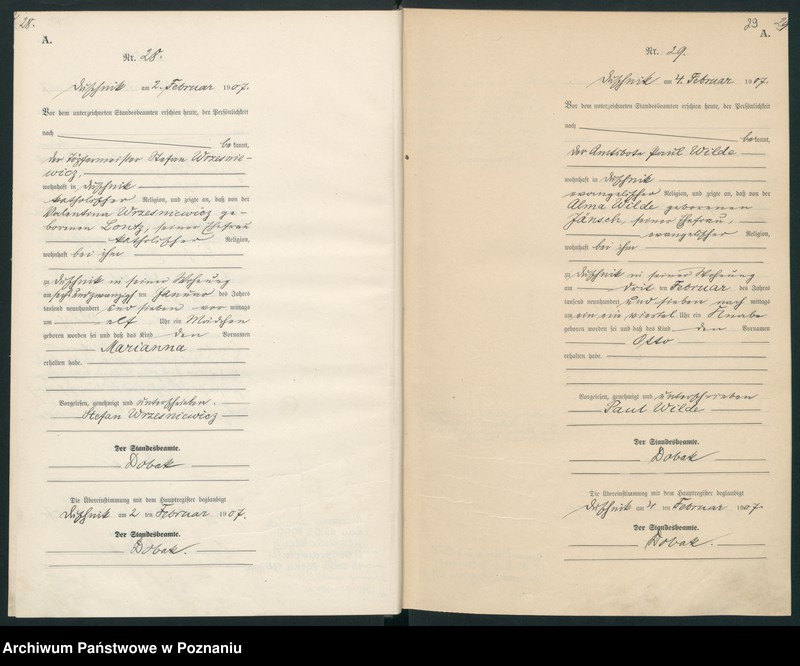 28.
A.
Nr. 28.
Duschnik am 2. Februar 1907.
Vor dem unterzeichneten Standesbeamten erschien heute, der Persönlichkeit
nach
bekannt,
der Töpfermeister Stefan Wrzesnie-
wicz,
wohnhaft in Duschnik
katholischer Religion, und zeigte an, daß von der
Valentina Wrzesniewicz ge-
borenen Lontz, seiner Ehefrau
katholischer Religion,
wohnhaft bei ihm
zu Duschnik in seiner Wohnung
am sechsundzwanzigsten Januar des Jahres
tausend neunhundert und sieben vor mittags
um elf Uhr ein Mädchen
geboren worden sei und daß das Kind den Vornamen
Marianna
erhalten habe.
Vorgelesen, genehmigt und unterschrieben.
Stefan Wrzesniewicz
Der Standesbeamte.
Dobak
Die Übereinstimmung mit dem Hauptregister beglaubigt
Duschnik am 2 ten Februar 1907.
Der Standesbeamte.
Dobak.
29
A.
Nr. 29.
Duschnik am 4. Februar 1907.
Vor dem unterzeichneten Standesbeamten erschien heute, der Persönlichkeit
nach
bekannt,
der Amtsbote Paul Wilde
wohnhaft in Duschnik
evangelischer Religion, und zeigte an, daß von der
Alma Wilde geborenen
Jänsch, seiner Ehefrau,
evangelischer Religion,
wohnhaft bei ihm
zu Duschnik in seiner Wohnung
am dritten Februar des Jahres
tausend neunhundert und sieben nach mittags
um ein ein viertel Uhr ein Knabe
geboren worden sei und daß das Kind den Vornamen
Otto
erhalten habe.
Vorgelesen, genehmigt und unterschrieben
Paul Wilde
Der Standesbeamte.
Dobak
Die Übereinstimmung mit dem Hauptregister beglaubigt
Duschnik am 4. ten Februar 1907.
Der Standesbeamte.
Dobak.
Archiwum Państwowe w Poznaniu